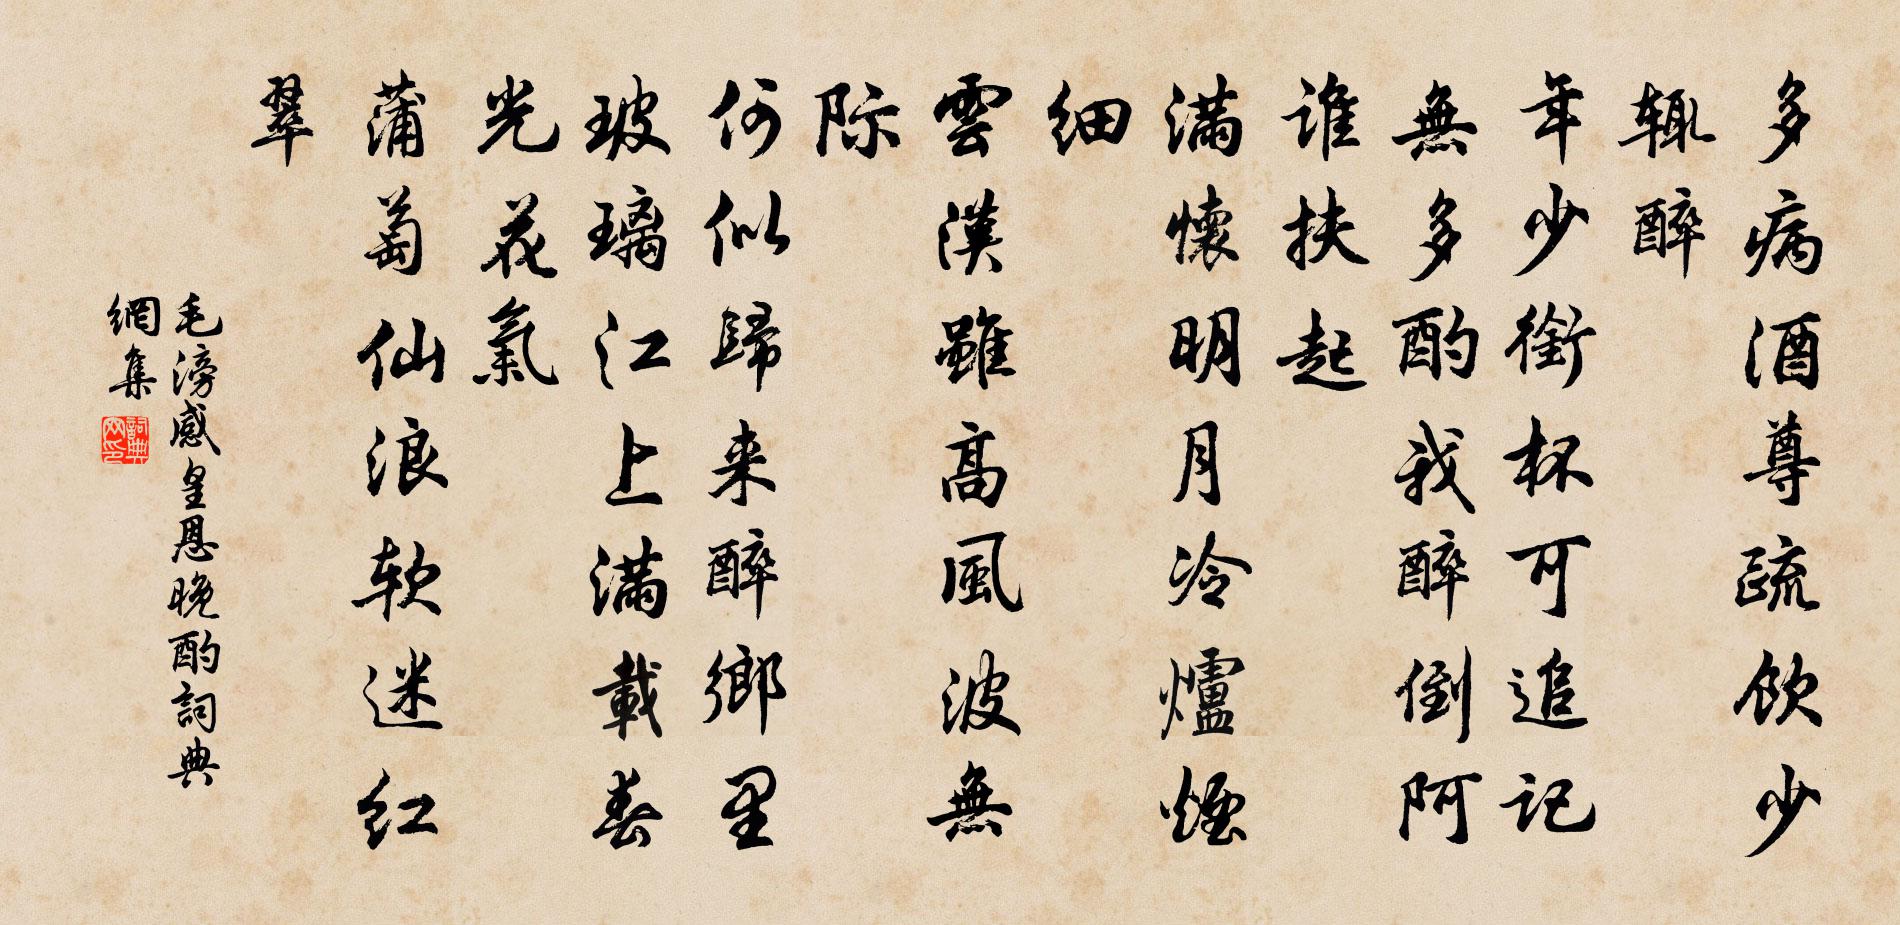 多病酒尊疏饮少
辄醉
年少銜杯可追记
無多酌我醉倒阿
谁扶起
满懷明月冷爐煙
细
雲漢雖高風波無
际
何似歸来醉鄉里
玻璃江上满載春
光花氣
蒲萄仙浪软迷红
翠
毛滂感皇恩晚酌詞典
網集
詞典網印